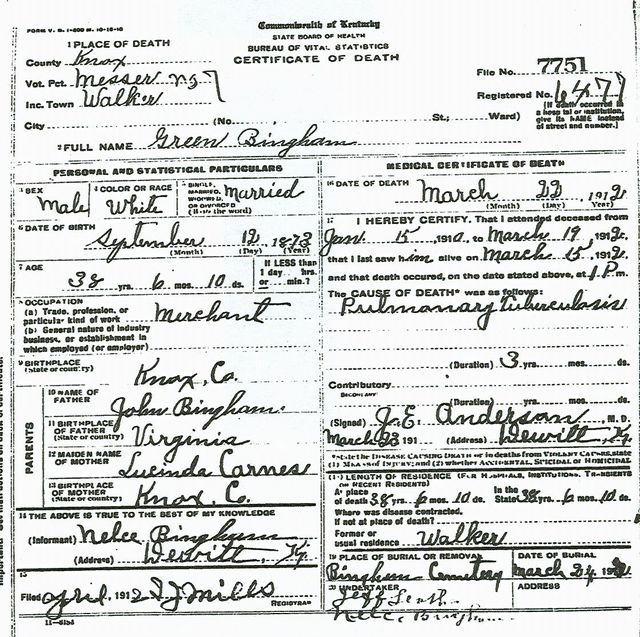 FORM V. S. 1-500 M. 10-18-10
Commonwealth of Kentucky
STATE BOARD OF HEALTH
BUREAU OF VITAL STATISTICS
CERTIFICATE OF DEATH
1 PLACE OF DEATH
County Knox
Vot. Pct. Messer No 7
Inc. Town Walker
City (No. St.; Ward)
File No. 7751
Registered No.
(If death occurred in a hospital or institution, give its NAME instead of street and number.)
2 FULL NAME Green Bingham
PERSONAL AND STATISTICAL PARTICULARS
3 SEX Male
4 COLOR OR RACE White
5 SINGLE, MARRIED, WIDOWED, OR DIVORCED (Write the word) Married
6 DATE OF BIRTH
September 12, 1873
(Month) (Day) (Year)
7 AGE
38 yrs. 6 mos. 10 ds.
If LESS than 1 day hrs. or min.?
8 OCCUPATION
(a) Trade, profession, or particular kind of work Merchant
(b) General nature of industry
business, or establishment in
which employed (or employer)
9 BIRTHPLACE
(State or country)
Knox, Co.
PARENTS
10 NAME OF FATHER John Bingham
11 BIRTHPLACE OF FATHER (State or country) Virginia
12 MAIDEN NAME OF MOTHER Lucinda Carnes
13 BIRTHPLACE OF MOTHER (State or country) Knox, Co.
14 THE ABOVE IS TRUE TO THE BEST OF MY KNOWLEDGE
(Informant) Bingham
(Address) Dewitt, Ky.
15
Filed April, 1912 Mills
REGISTRAR
MEDICAL CERTIFICATE OF DEATH
16 DATE OF DEATH March 22, 1912
(Month) (Day) (Year)
17 I HEREBY CERTIFY, That I attended deceased from
Jan. 15, 1910, to March 19, 1912,
that I last saw him alive on March 15, 1912,
and that death occured, on the date stated above, at 1 P.m.
The CAUSE OF DEATH* was as follows:
Pulmonary Tuberculosis
(Duration) 3 yrs. mos. ds.
Contributory
SECONDARY
(Duration) yrs. mos. ds.
(Signed) J. E. Anderson, M. D.
March 23 191 (Address) Dewitt, Ky.
*State the DISEASE CAUSING DEATH or in deaths from VIOLENT CAUSES, state
(1) MEANS OF INJURY; and (2) whether ACCIDENTAL, SUICIDAL OR HOMICIDAL
18 LENGTH OF RESIDENCE (FOR HOSPITALS, INSTITUTIONS, TRANSIENTS
OR RECENT RESIDENTS)
At place of death 38 yrs. 6 mos. 10 ds. In the State 38 yrs. 6 mos. 10 ds.
Where was disease contracted,
If not at place of death?
Former or usual residence Walker
19 PLACE OF BURIAL OR REMOVAL DATE OF BURIAL
Bingham Cemetery March 24, 191
20 UNDERTAKER ADDRESS
Jeff
Bingham